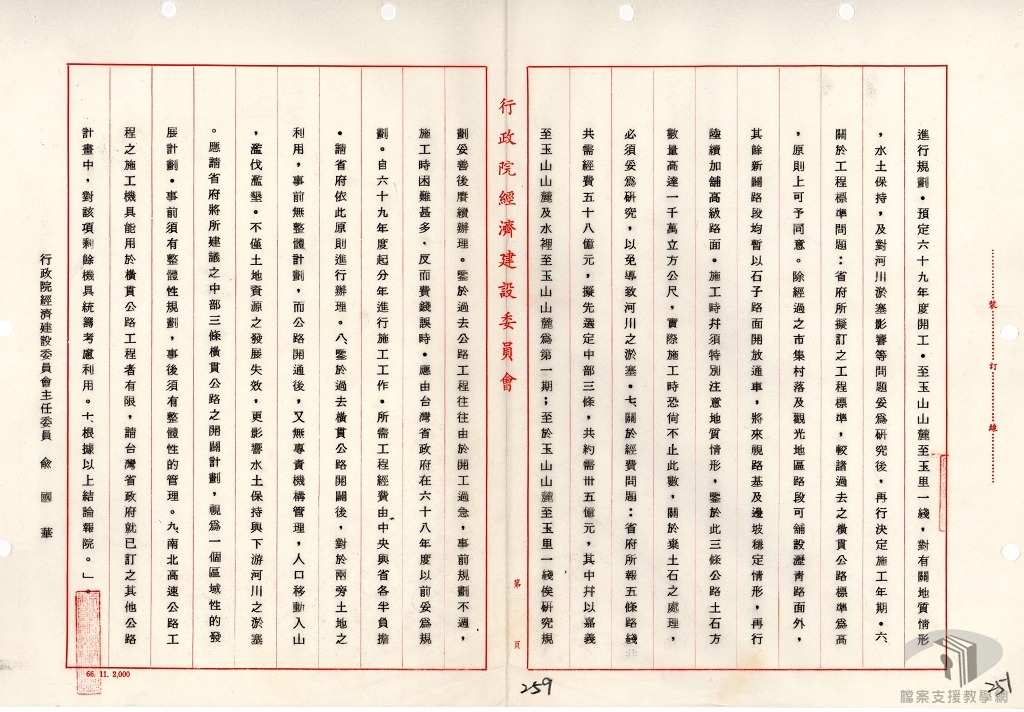 進行規劃。預定六十九年度開工。至玉山山麓至玉里一綫,對有關地質情形
,水土保持,及對河川淤塞影響等問題妥為研究後,再行決定施工年期。六
關於工程標準問題:省府所擬訂之工程標準,較諸過去之橫貫公路標準為高
,原則上可予同意。除經過之市集村落及觀光地區路段可舖設瀝青路面外,
其餘新闢路段均暫以石子路面開放通車,將來視路基及邊坡穩定情形,再行
陸續加舖高級路面。施工時幷須特別注意地質情形,鑒於此三條公路土石方
數量高達一千萬立方公尺,實際施工時恐尚不止此數,關於棄土石之處理,
必須妥為研究,以免導致河川之淤塞。七、關於經費問題:省府所報五條路綫
共需經費五十八億元,擬先選定中部三條,共約需卅五億元,其中幷以嘉義
至玉山山麓及水裡至玉山山麓為第一期;至於玉山山麓至玉里一綫俟研究規
行政院經濟建設委員會
第 頁
劃妥善後賡續辦理。鑒於過去公路工程往往由於開工過急,事前規劃不週,
施工時困難甚多,反而費錢誤時。應由台灣省政府在六十八年度以前妥為規
劃。自六十九年度起分年進行施工工作。所需工程經費由中央與省各半負擔
。請省府依此原則進行辦理。八、鑒於過去橫貫公路開闢後,對於兩旁土地之
利用,事前無整體計劃,而公路開通後,又無專責機構管理,人口移動入山
,濫伐濫墾。不僅土地資源之發展失效,更影響水土保持與下游河川之淤塞
。應請省府將所建議之中部三條橫貫公路之開闢計劃,視為一個區域性的發
展計劃。事前須有整體性規劃,事後須有整體性的管理。九、南北高速公路工
程之施工機具能用於橫貫公路工程者有限,請台灣省政府就已訂之其他公路
計畫中,對該項剩餘機具統籌考慮利用。十、根據以上結論報院。」。
行政院經濟建設委員會主任委員 俞 國 華
裝 訂 線
66. 11. 2,000
259
251
檔案支援教學網